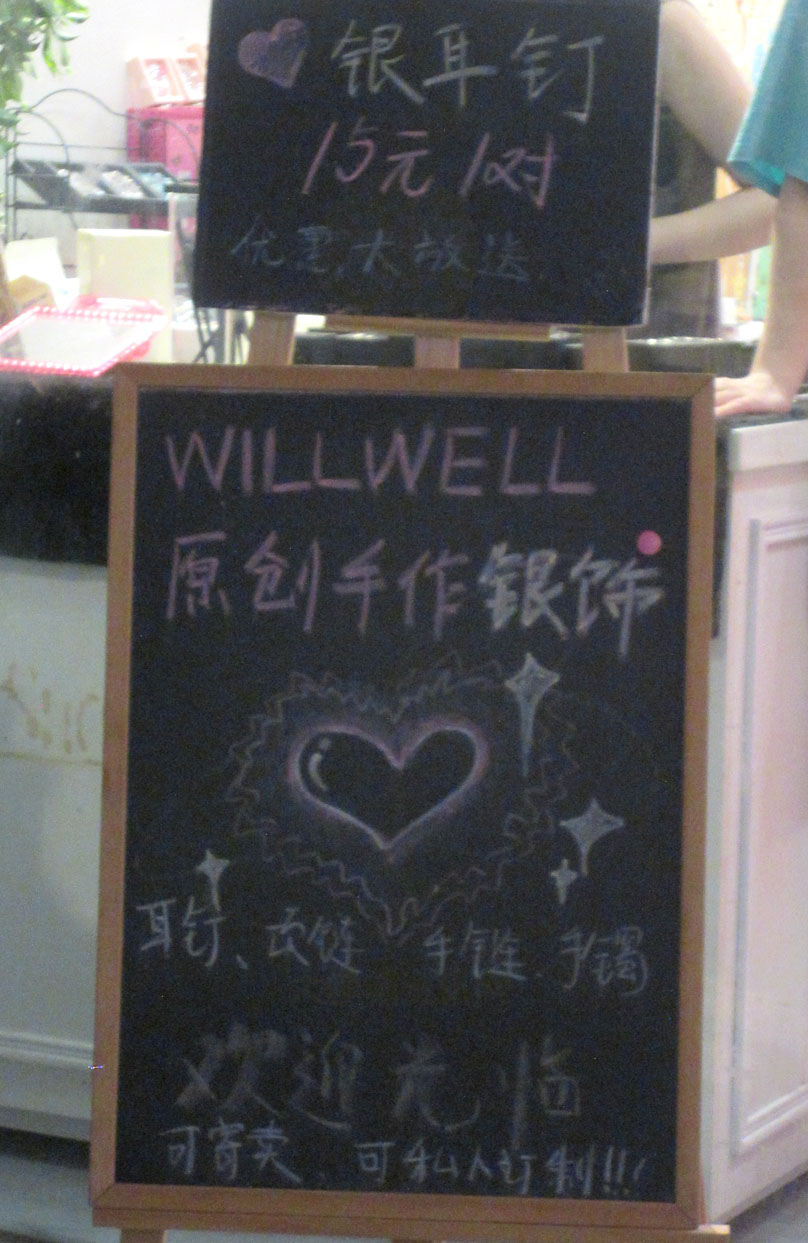 银耳钉
15元1对
优惠大放送
WILLWELL
原创手作银饰
耳钉、项链 手链、手镯
欢迎光临
可寄卖、可私人订制!!!